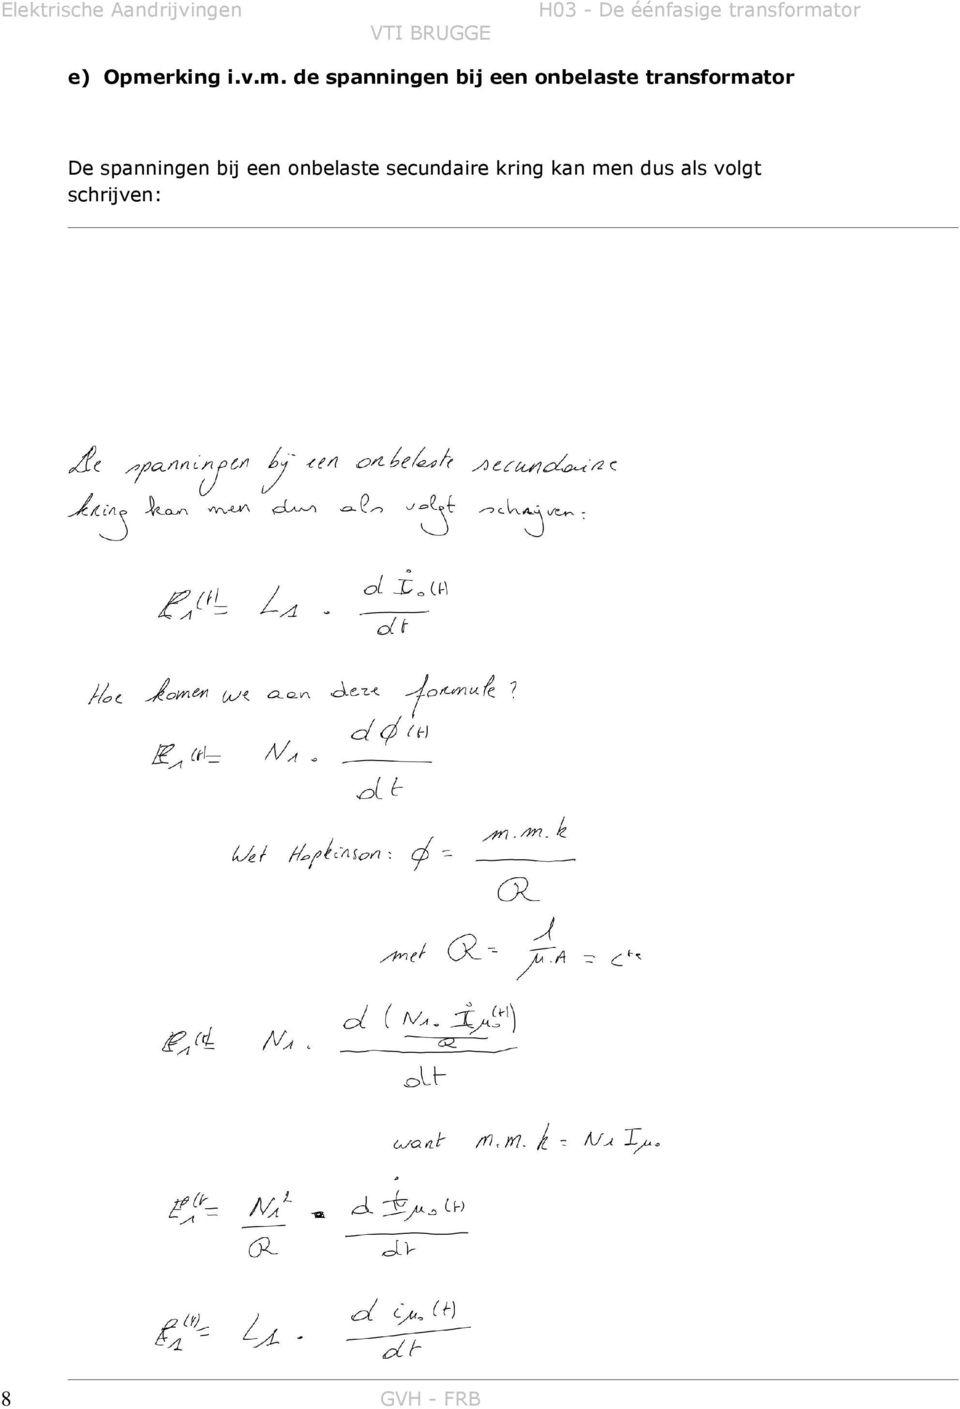 Elektrische Aandrijvingen H03 - De éénfasige transformator
VTI BRUGGE
e) Opmerking i.v.m. de spanningen bij een onbelaste transformator
De spanningen bij een onbelaste secundaire kring kan men dus als volgt
schrijven:
De spanningen bij een onbelaste secundaire
kring kan men dus als volgt schrijven:
E₁(t) = L₁ . d i₀(t) / dt
Hoe komen we aan deze formule?
E₁(t) = N₁ . dϕ(t) / dt
Wet Hopkinson: ϕ = m.m.k / R
met R = l / μ.A = cᵗᵉ
E₁(t) = N₁ . d (N₁. iμ₀(t) / R) / dt
want m.m.k = N₁ Iμ₀
E₁(t) = N₁² / R . d iμ₀(t) / dt
E₁(t) = L₁ . d iμ₀(t) / dt
8 GVH - FRB